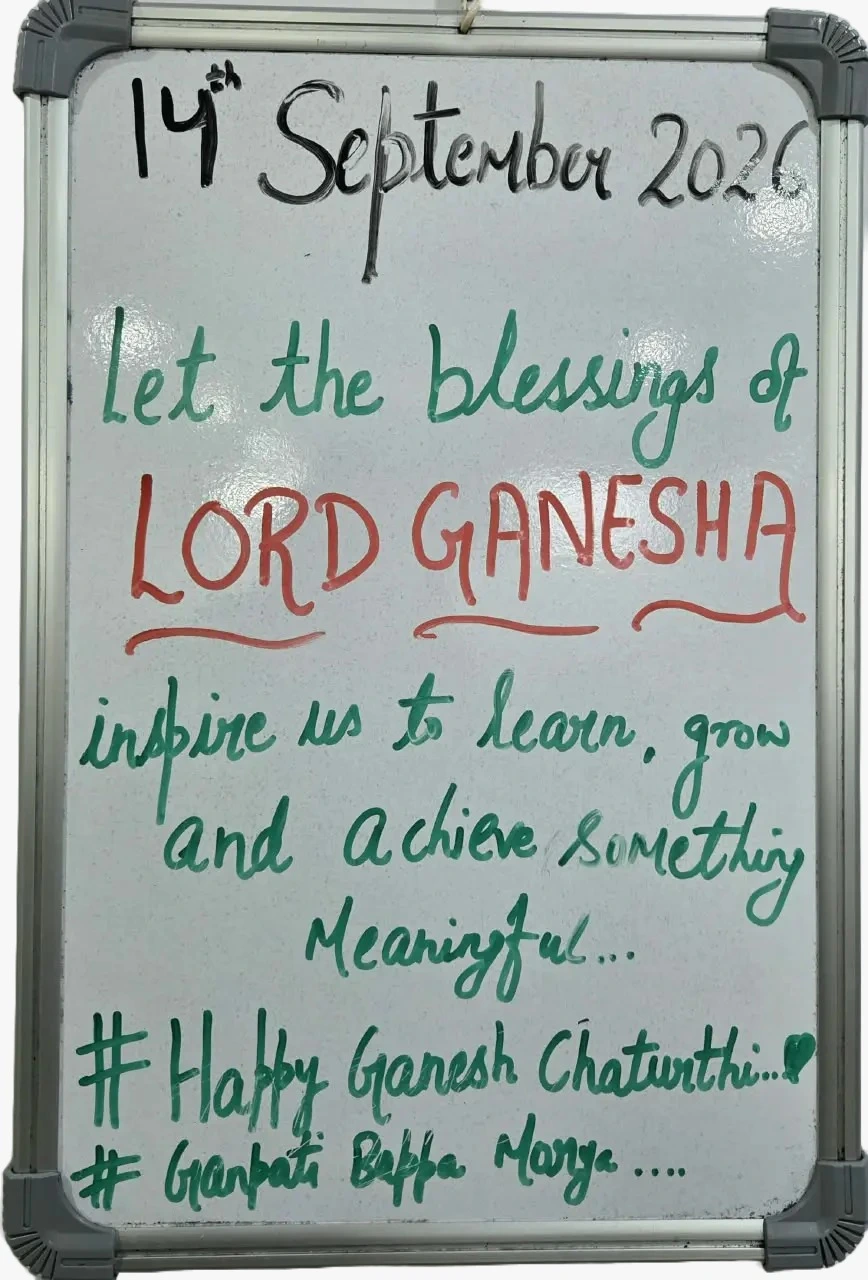 14th September 2026
Let the blessings of
LORD GANESHA
inspire us to learn, grow
and achieve something
Meaningful...
# Happy Ganesh Chaturthi..♥
# Ganpati Bappa Morya ....